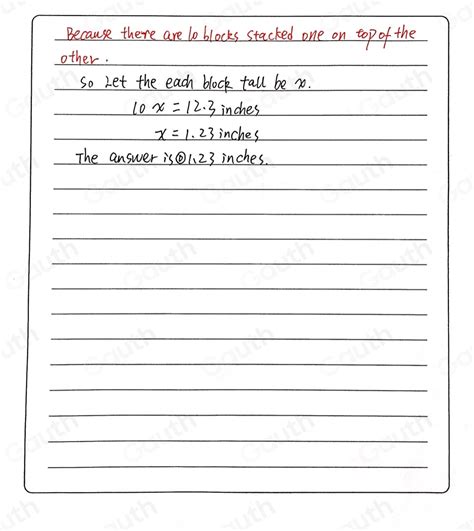 Because there are 10 blocks stacked one on top of the
other.
So Let the each block tall be x.
10 x = 12.3 inches
x = 1.23 inches
The answer is Ⓓ 1.23 inches.
Gauth